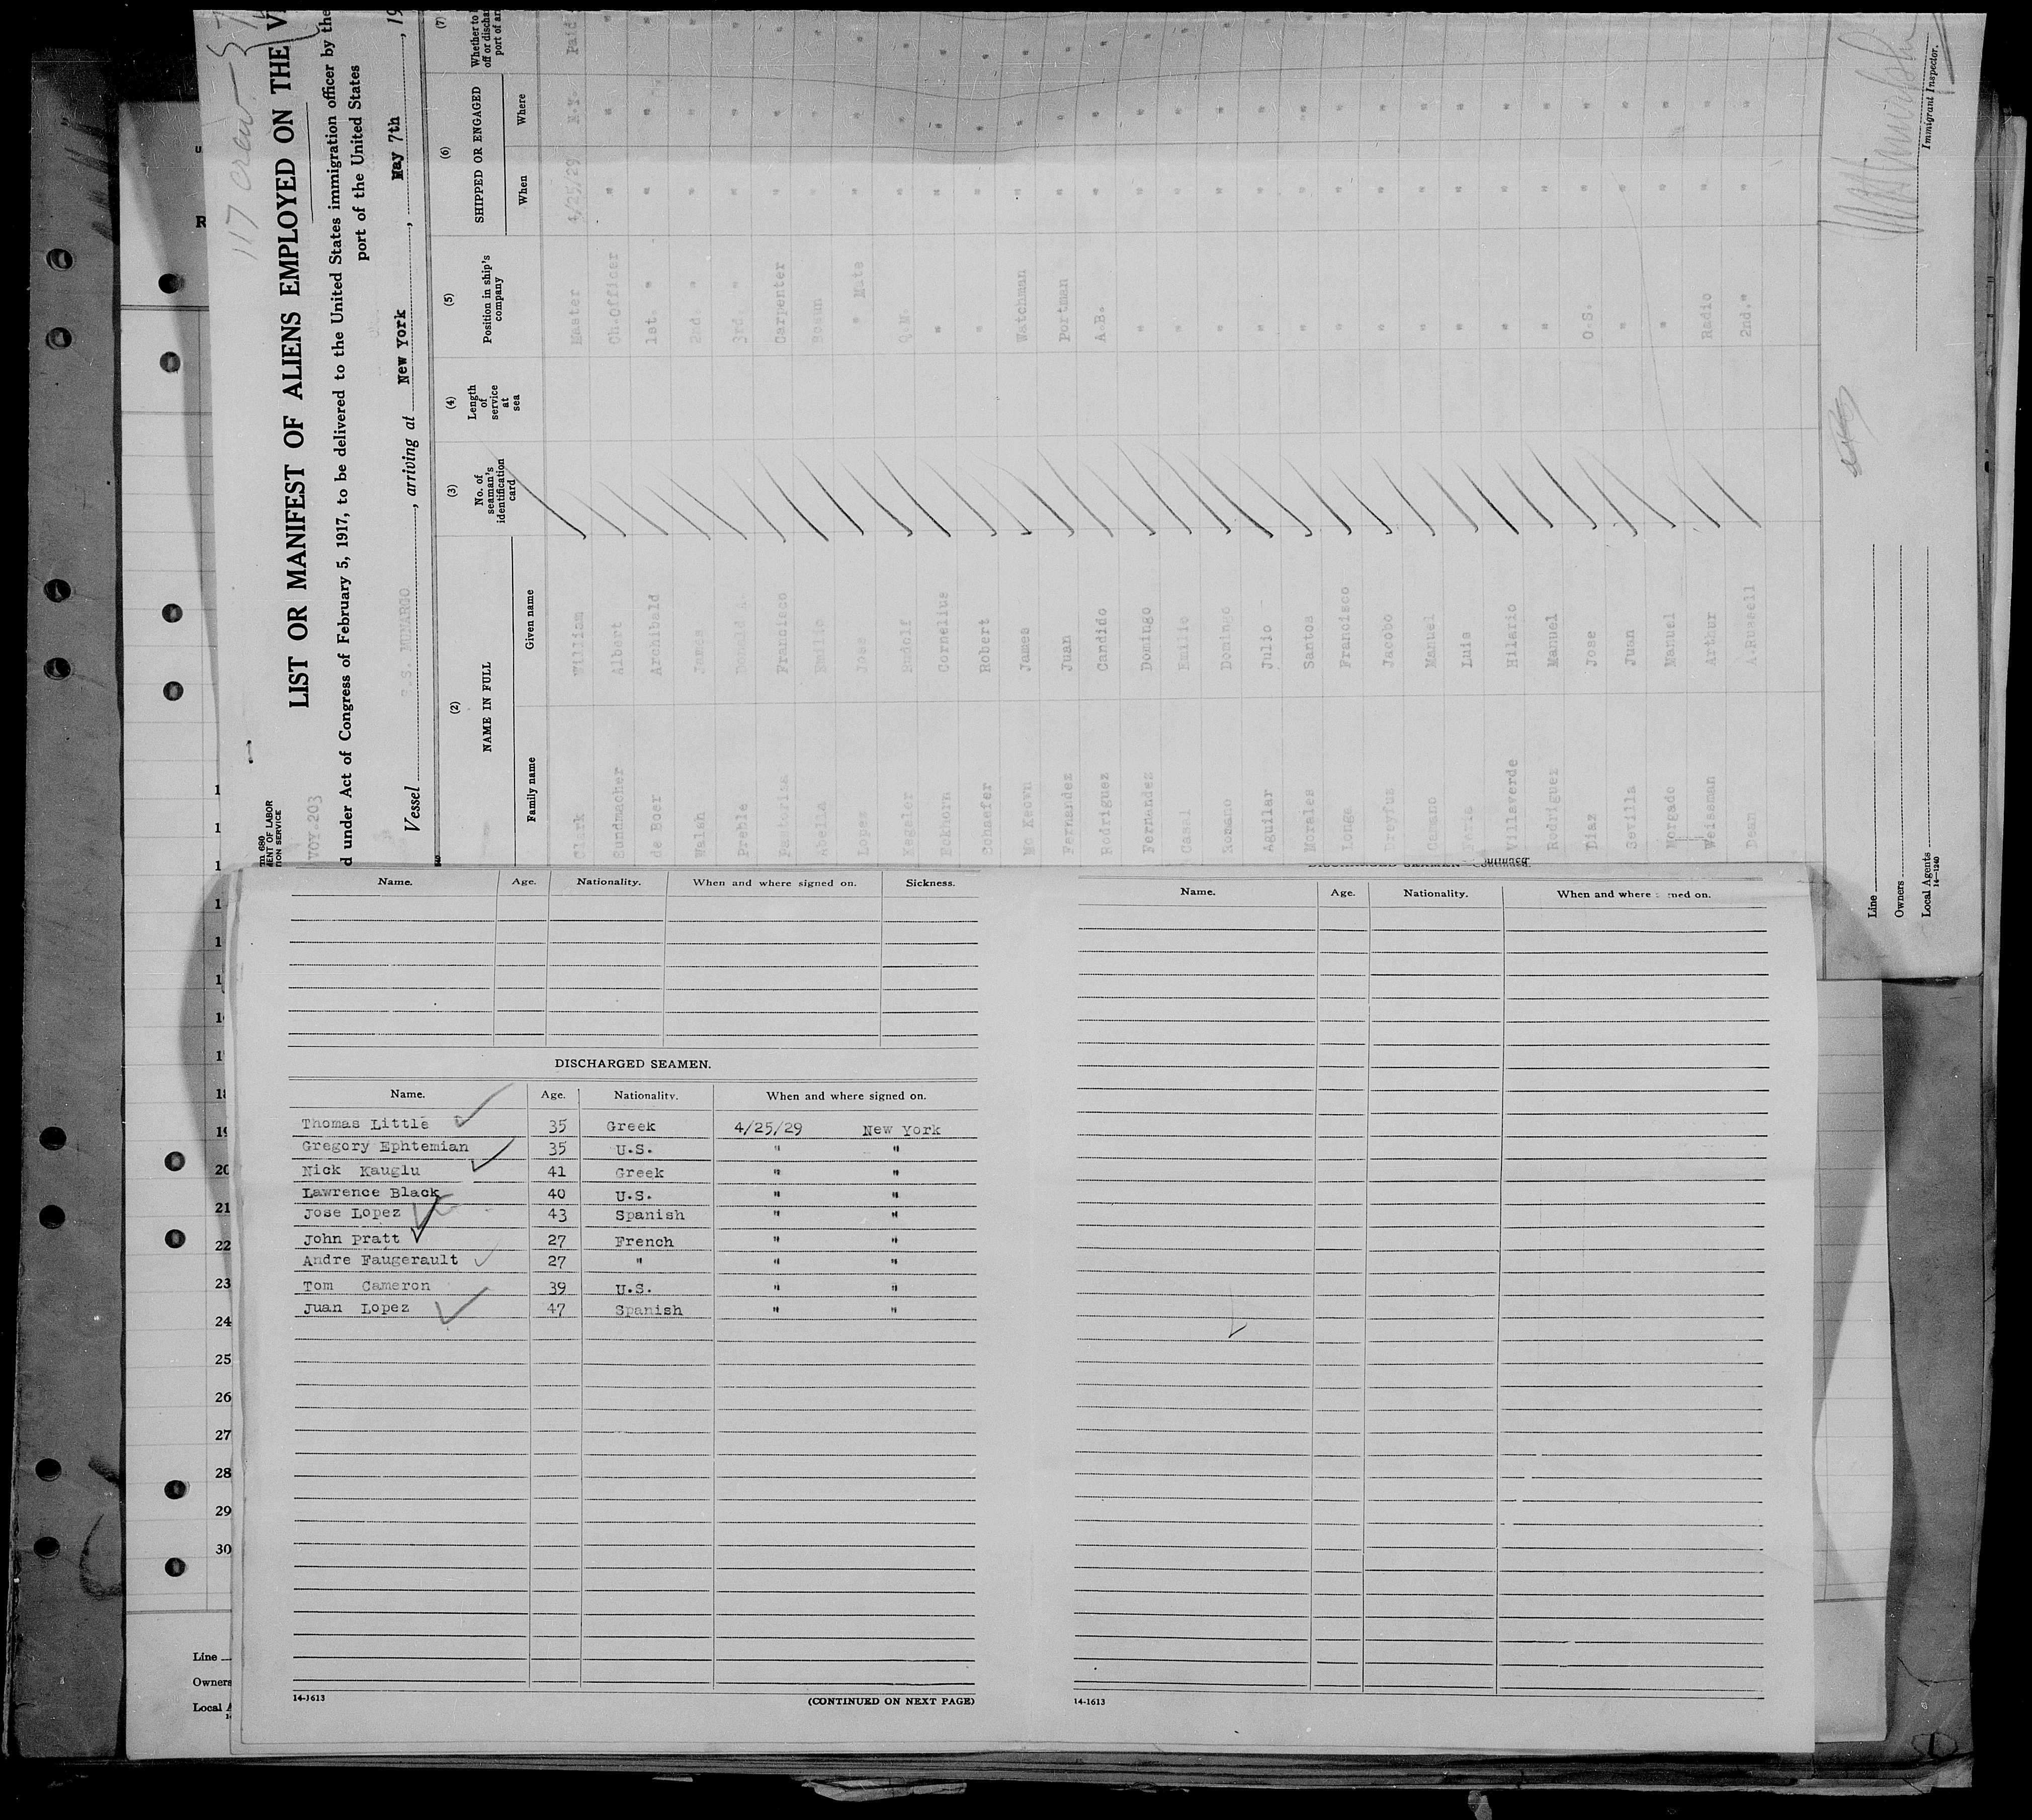 117 crew
LIST OR MANIFEST OF ALIENS EMPLOYED ON THE
d under Act of Congress of February 5, 1917, to be delivered to the United States immigration officer by the
port of the United States
TION SERVICE
VOY.203
Vessel S.S. MUNARGO, arriving at New York, May 7th, 19
(2) (3) (4) (5) (6) (7)
NAME IN FULL No. of seaman's identification card Length of service at sea Position in ship's company SHIPPED OR ENGAGED
Family name Given name When Where
Clark William Master 4/25/29 N.Y. Paid
Gundmacher Albert Ch.Officer " " "
de Boer Archibald 1st. " " " "
Walsh James 2nd " " " "
Preble Donald 3rd. " " " "
Francisco Carpenter " " "
Abella Emilio Bosun " " "
Lopez Jose " Mate " " "
Kegeler Rudolf Q.M. " " "
Hokhorn Cornelius " " " "
Schaefer Robert " " " "
Mc Keown James Watchman " " "
Fernandez Juan Portman " " "
Rodriguez Candido A.B. " " "
Fernandez Domingo " " " "
Canal Emilio " " " "
Romano Domingo " " " "
Aguilar Julio " " " "
Morales Santos " " " "
Longa Francisco " " " "
Dreyfus Jacobo " " " "
Camano Manuel " " " "
Feria Luis " " " "
Villaverde Hilario " " " "
Rodriguez Manuel " " " "
Diaz Jose O.S. " " "
Sevilla Juan " " " "
Morgado Manuel " " " "
Weissman Arthur Radio " " "
Dean A.Russell 2nd." " " "
Immigrant Inspector.
Line
Owners
Local Agents
14-1240
Name. Age. Nationality. When and where signed on. Sickness.
DISCHARGED SEAMEN.
Name. Age. Nationality. When and where signed on.
Thomas Little 35 Greek 4/25/29 New York
Gregory Ephtemian 35 U.S. " "
Nick Kauglu 41 Greek " "
Lawrence Black 40 U.S. " "
Jose Lopez 43 Spanish " "
John Pratt 27 French " "
Andre Faugerault 27 " " "
Tom Cameron 39 U.S. " "
Juan Lopez 47 Spanish " "
14-1613 (CONTINUED ON NEXT PAGE)
DISCHARGED SEAMEN—Continued.
Name. Age. Nationality. When and where signed on.
14-1613
18
19
20
21
22
23
24
25
26
27
28
29
30
Line
Owners
Local